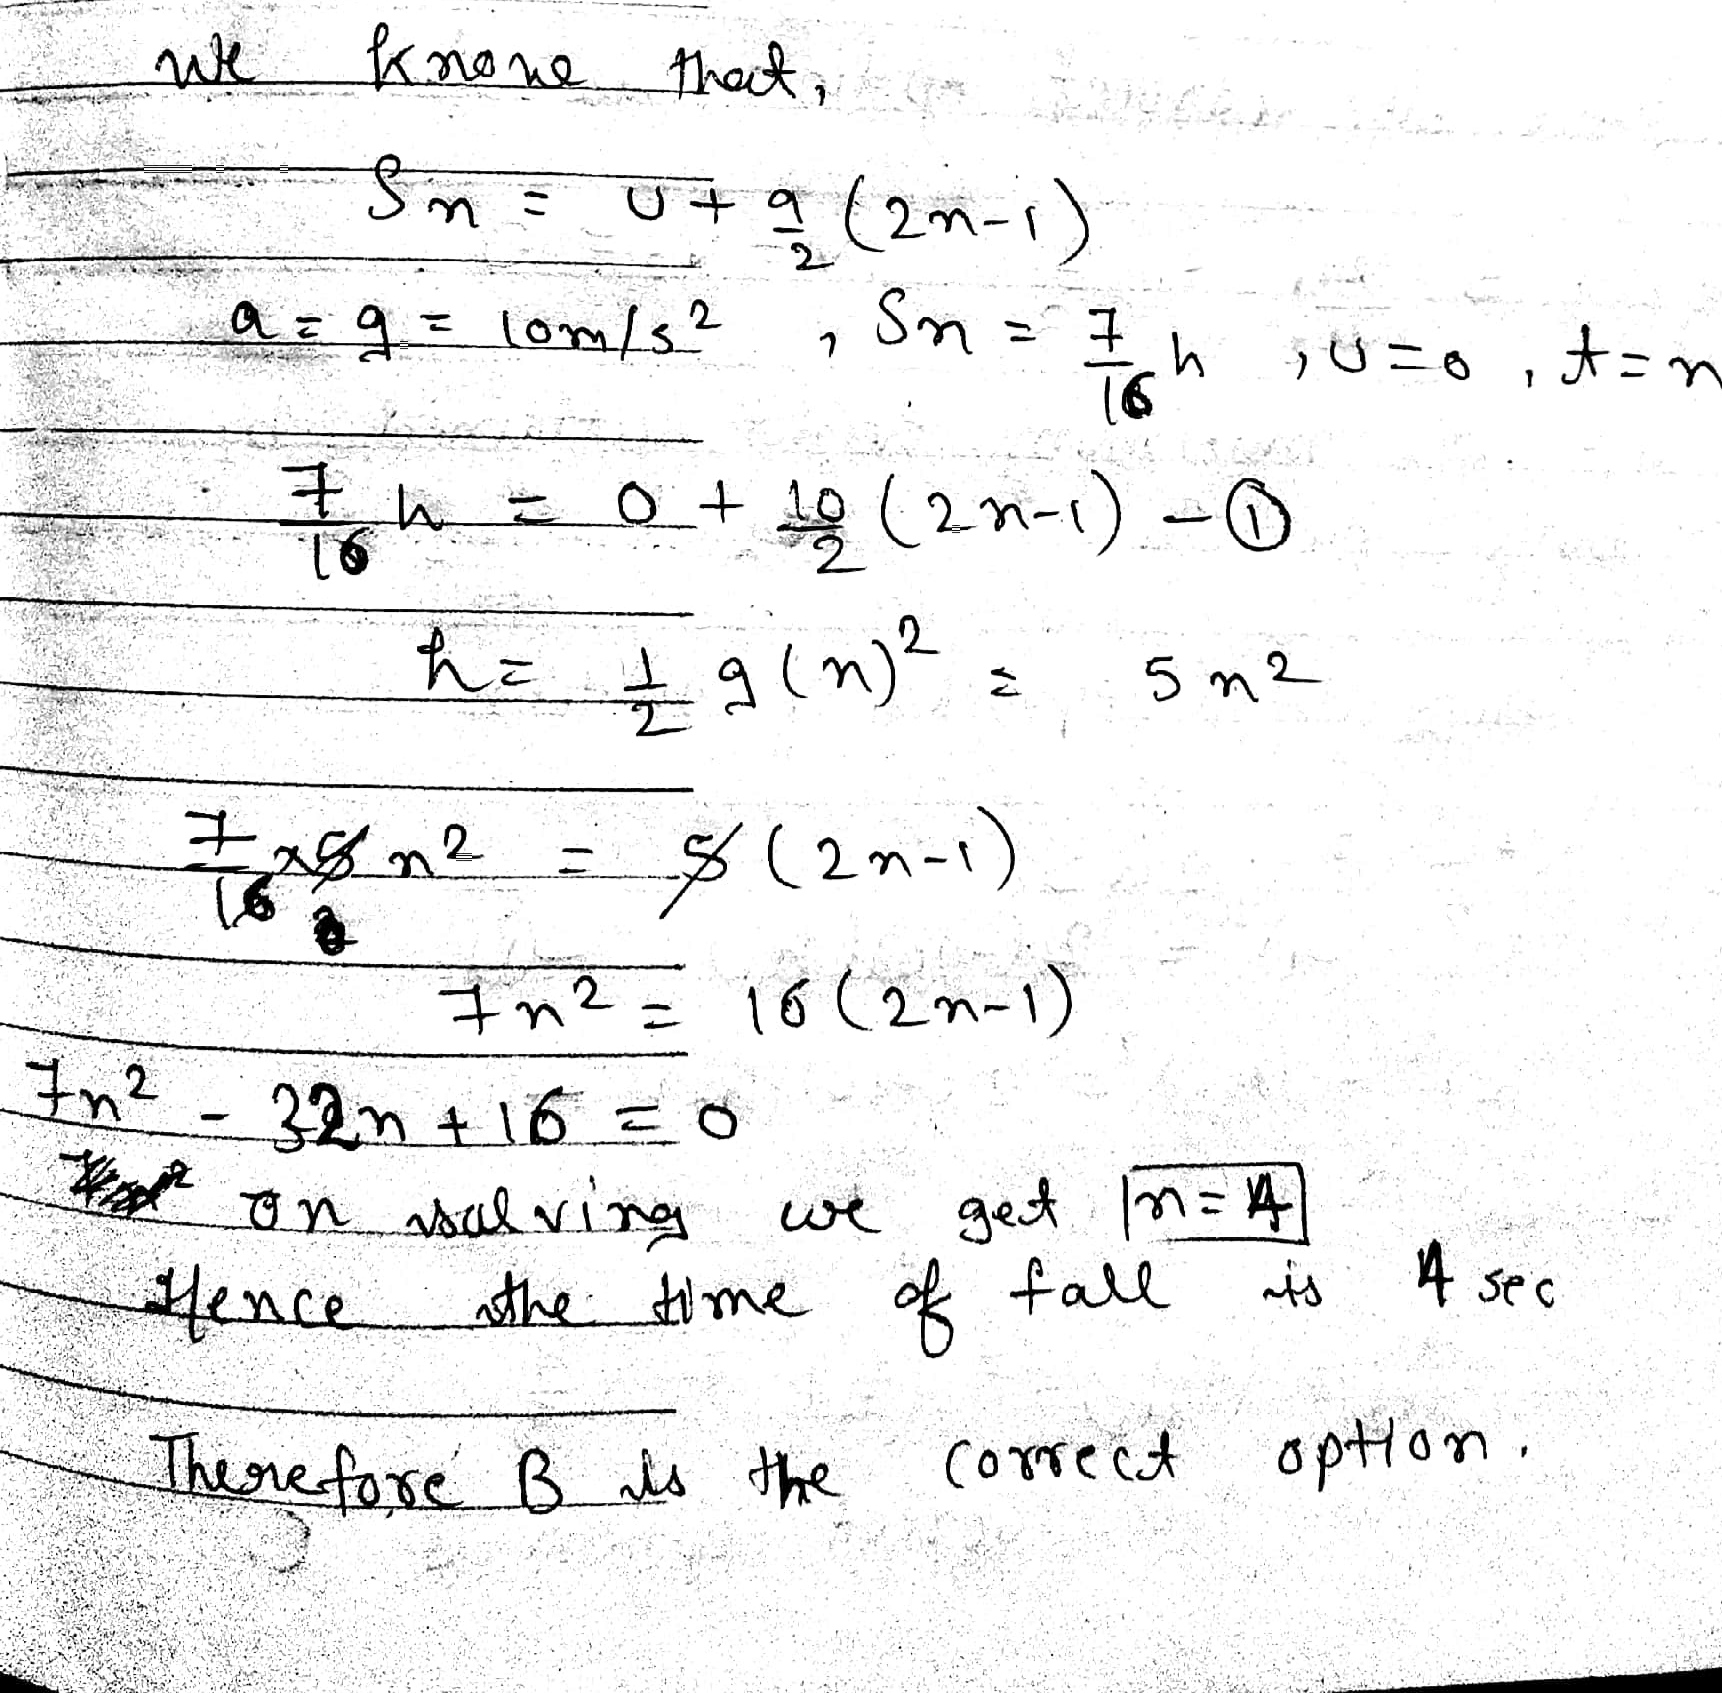 we know that,
Sn = u + a/2 (2n-1)
a = g = 10m/s² , Sn = 7/16 h , u=0 , t=n
7/16 h = 0 + 10/2 (2n-1) - ①
h = 1/2 g(n)² = 5n²
7/16 x5 n² = 5 (2n-1)
7n² = 16(2n-1)
7n² - 32n + 16 = 0
on solving we get n=4
Hence the time of fall is 4 sec
Therefore B is the correct option.